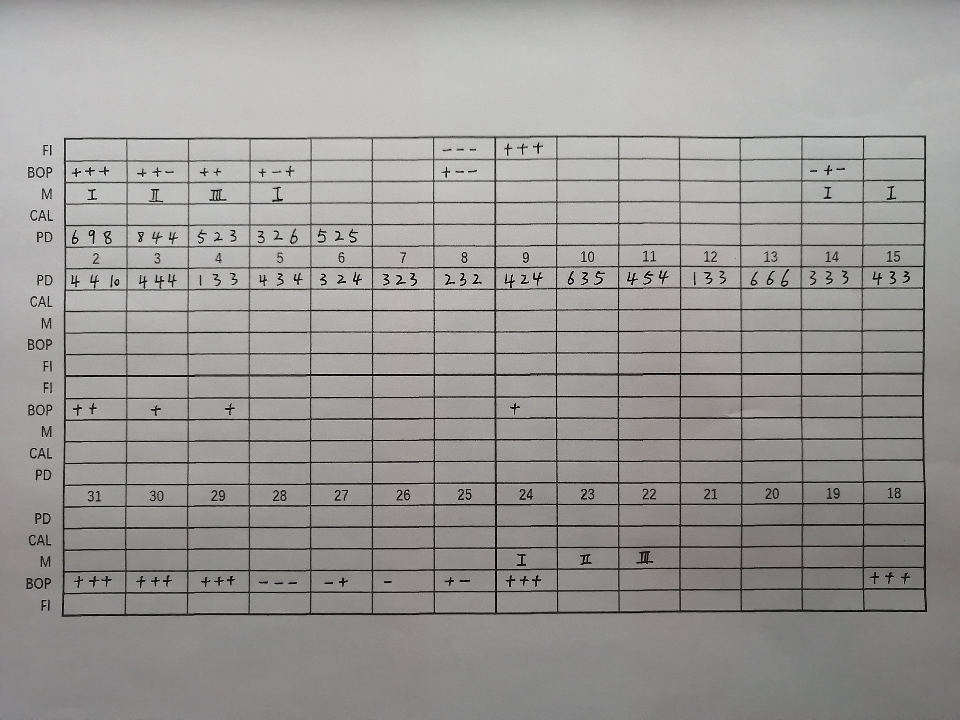 FI --- +++
BOP +++ ++- ++ +-+ +-- -+-
M I II III I I I
CAL
PD 6 9 8 8 4 4 5 2 3 3 2 6 5 2 5
2 3 4 5 6 7 8 9 10 11 12 13 14 15
PD 4 4 10 4 4 4 1 3 3 4 3 4 3 2 4 3 2 3 2 3 2 4 2 4 6 3 5 4 5 4 1 3 3 6 6 6 3 3 3 4 3 3
CAL
M
BOP
FI
FI
BOP ++ + + +
M
CAL
PD
31 30 29 28 27 26 25 24 23 22 21 20 19 18
PD
CAL
M I II III
BOP +++ +++ +++ --- -+ - +- +++ +++
FI